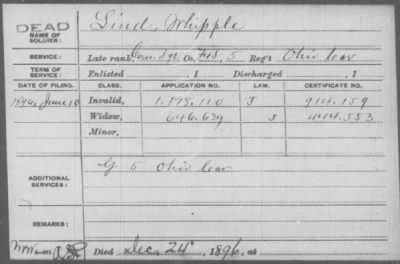 DEAD
NAME OF SOLDIER: Lind, Whipple
SERVICE: Late rank, Com. Sgt Co. F&S, 5 Reg't Ohio Cav
TERM OF SERVICE: Enlisted , 1 Discharged , 1
DATE OF FILING. CLASS. APPLICATION NO. LAW. CERTIFICATE NO.
1894, June 10 Invalid, 1.175.110 J 914.159
Widow, 646.639 J 444.553
Minor,
ADDITIONAL SERVICES: G 5 Ohio Cav
REMARKS:
Died Dec. 24" , 1896, at